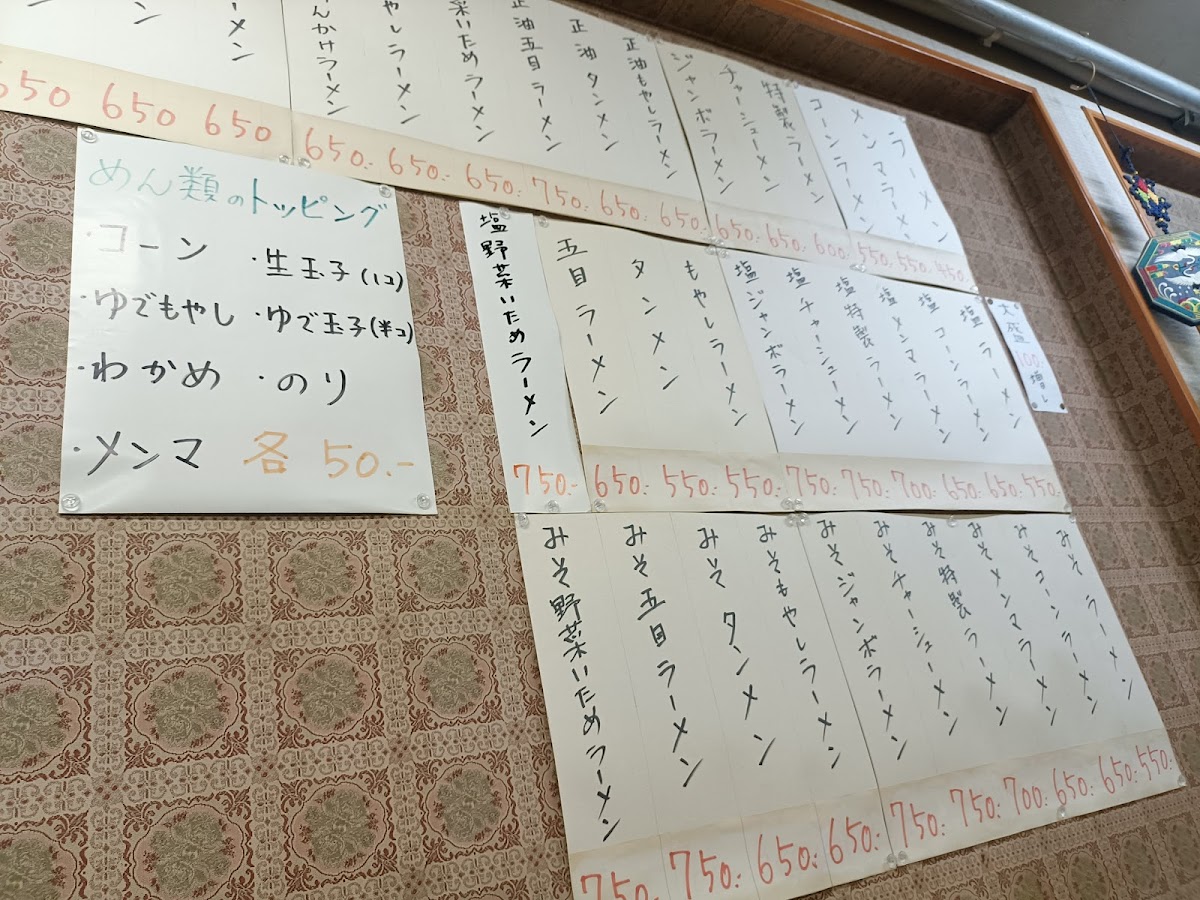 ラーメン
450.
メンマラーメン
550.
コーンラーメン
550.
特製ラーメン
600.
チャーシューメン
650.
ジャンボラーメン
650.
正油もやしラーメン
650.
正油タンメン
650.
正油五目ラーメン
750.
菜いためラーメン
650.
やしラーメン
650.
んかけラーメン
650.
メン
650
ン
650
650
大盛
100.-
増し
塩ラーメン
550.
塩コーンラーメン
650.
塩メンマラーメン
650.
塩特製ラーメン
700.
塩チャーシューメン
750.
塩ジャンボラーメン
750.
もやしラーメン
550.
タンメン
550.
五目ラーメン
650.
塩野菜いためラーメン
750.-
みそラーメン
550.
みそコーンラーメン
650.
みそメンマラーメン
650.
みそ特製ラーメン
700.
みそチャーシューメン
750.
みそジャンボラーメン
750.
みそもやしラーメン
650.
みそタンメン
650.
みそ五目ラーメン
750.
みそ野菜いためラーメン
750.
めん類のトッピング
・コーン ・生玉子(1コ)
・ゆでもやし ・ゆで玉子(半コ)
・わかめ ・のり
・メンマ 各 50.-